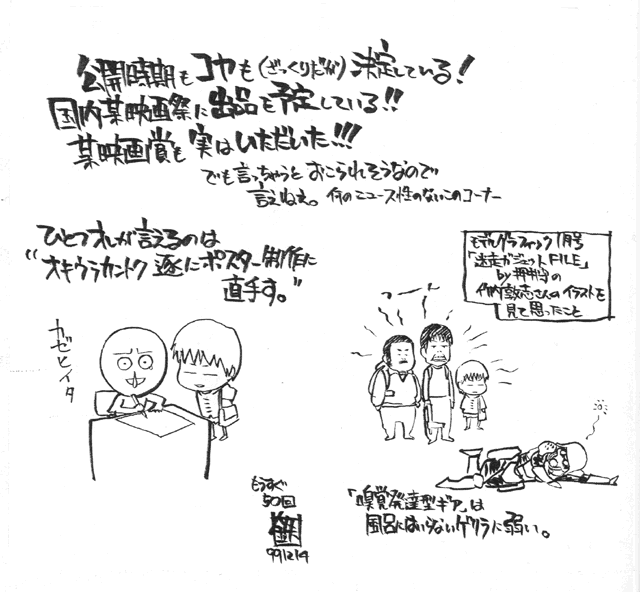 公開時期もコヤも(ざっくりだが)決定している!
国内某映画祭に出品を予定している!!
某映画賞も実はいただいた!!!
でも言っちゃうとおこられそうなので
言えねえ。何のニュース性のないこのコーナー
ひとつオレが言えるのは
"オキウラカントク遂にポスター制作に
直手す。"
カゼヒイタ
もうすぐ
50回
991214
モデルグラフィックス1月号
「迷走ガジェットFILE」
by押井守の
竹内敦志さんのイラストを
見て思ったこと
「嗅覚発達型ギア」は
風呂にはいらないゲクラに弱い。